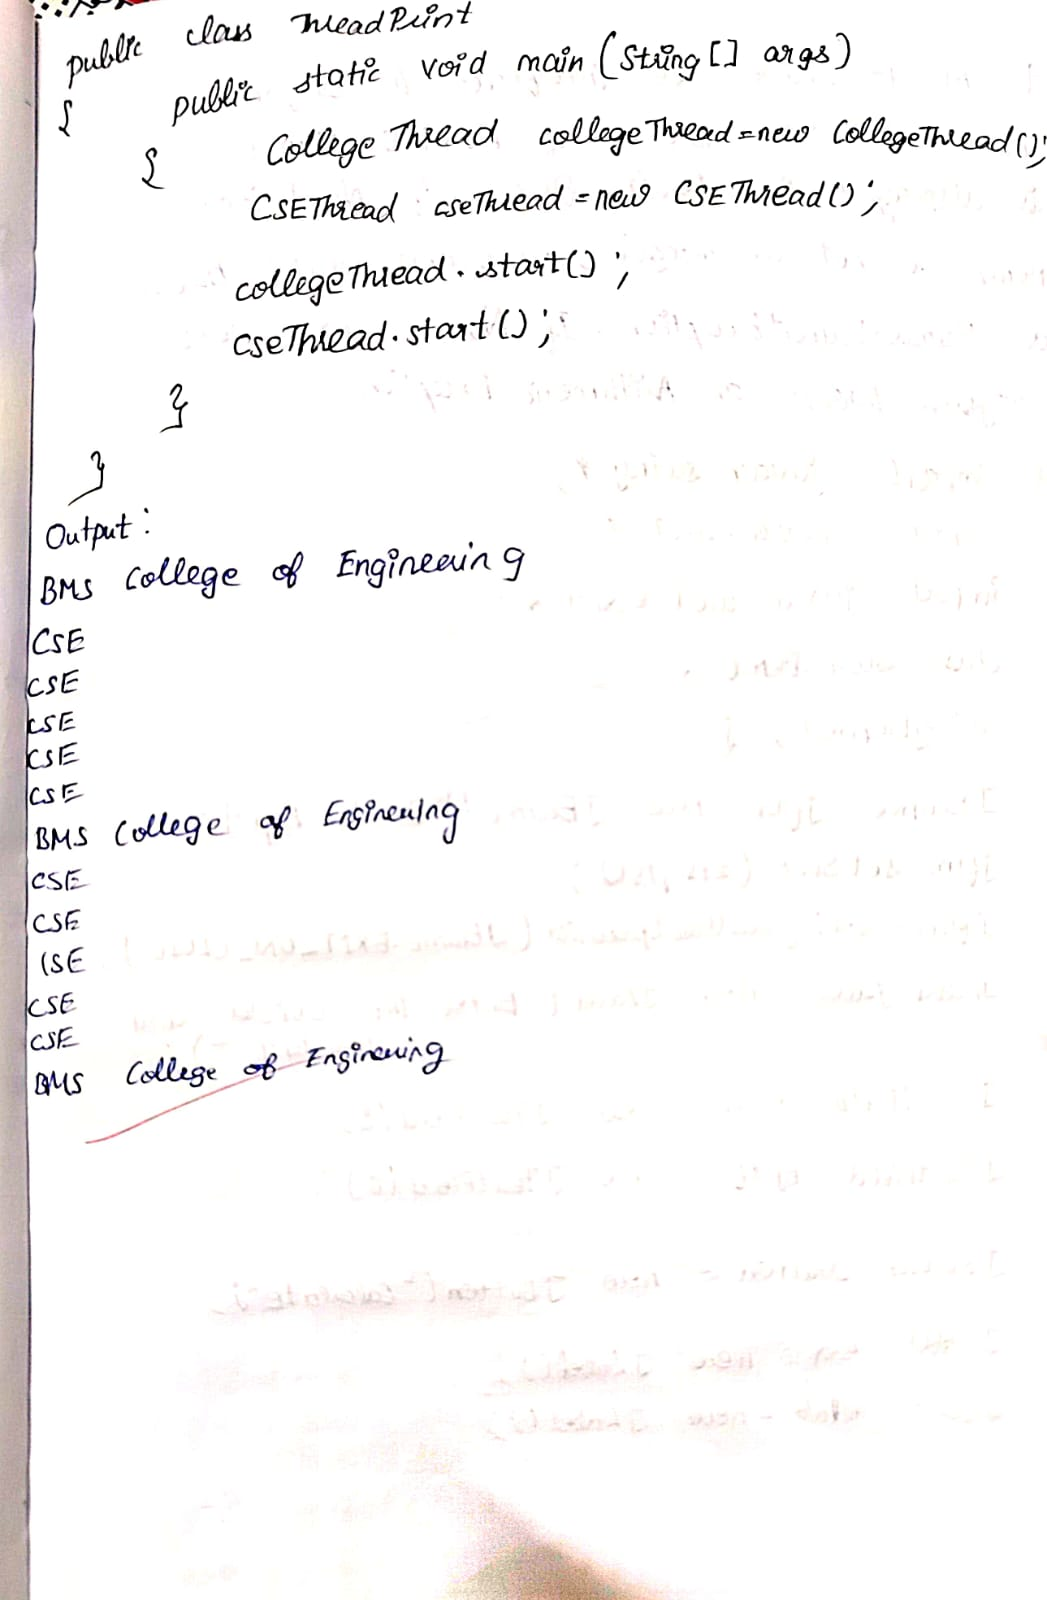 public class ThreadPrint
{ public static void main (String [] args)
{ College Thread collegeThread = new CollegeThread();
CSEThread cseThread = new CSEThread();
collegeThread.start();
cseThread.start();
}
}
Output:
BMS College of Engineering
CSE
CSE
CSE
CSE
CSE
BMS College of Engineering
CSE
CSE
CSE
CSE
CSE
BMS College of Engineering